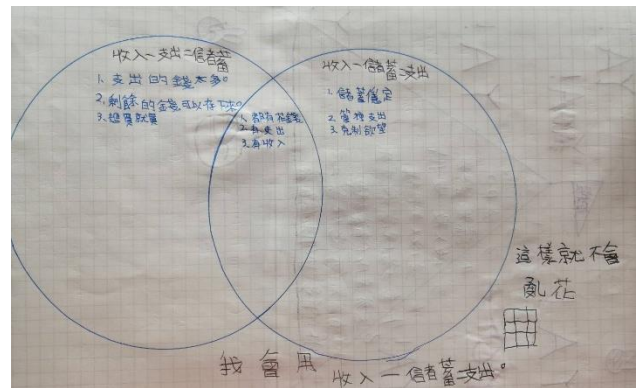 收入－支出=儲蓄
1. 支出的錢不多。
2. 剩餘的錢可以存下來。
3. 想買就買
1. 都有花錢
2. 有支出
3. 有收入
收入－儲蓄=支出
1. 儲蓄固定
2. 管控支出
3. 克制慾望
這樣就不會
亂花
我會用
收入－儲蓄=支出。